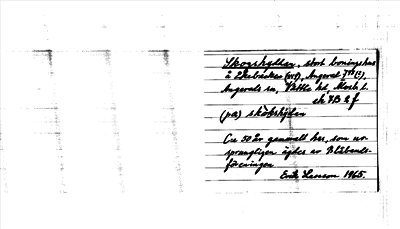 Skogshyllan, stort boningshus
å Ekebacken (oo1), Angered 7⁵⁰ (?),
Angereds sn, Vättle hd, Älvsb. l.
ek 7B 2 f
(pa) skòkshỳlan
Ca 50 år gammalt hus, som ur-
sprungligen ägdes av Blåbands-
föreningen
Erik Larsson 1965.